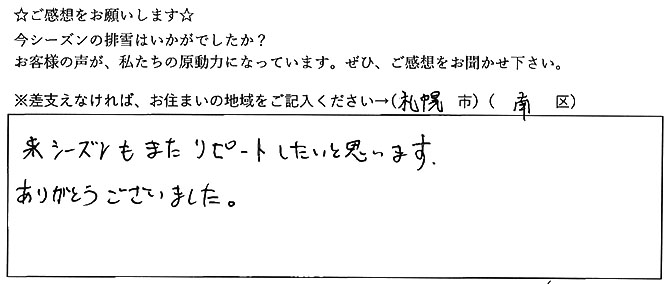 ☆ご感想をお願いします☆
今シーズンの排雪はいかがでしたか？
お客様の声が、私たちの原動力になっています。ぜひ、ご感想をお聞かせ下さい。
※差支えなければ、お住まいの地域をご記入ください→(札幌 市)( 南 区)
来シーズンもまたリピートしたいと思います.
ありがとうございました。